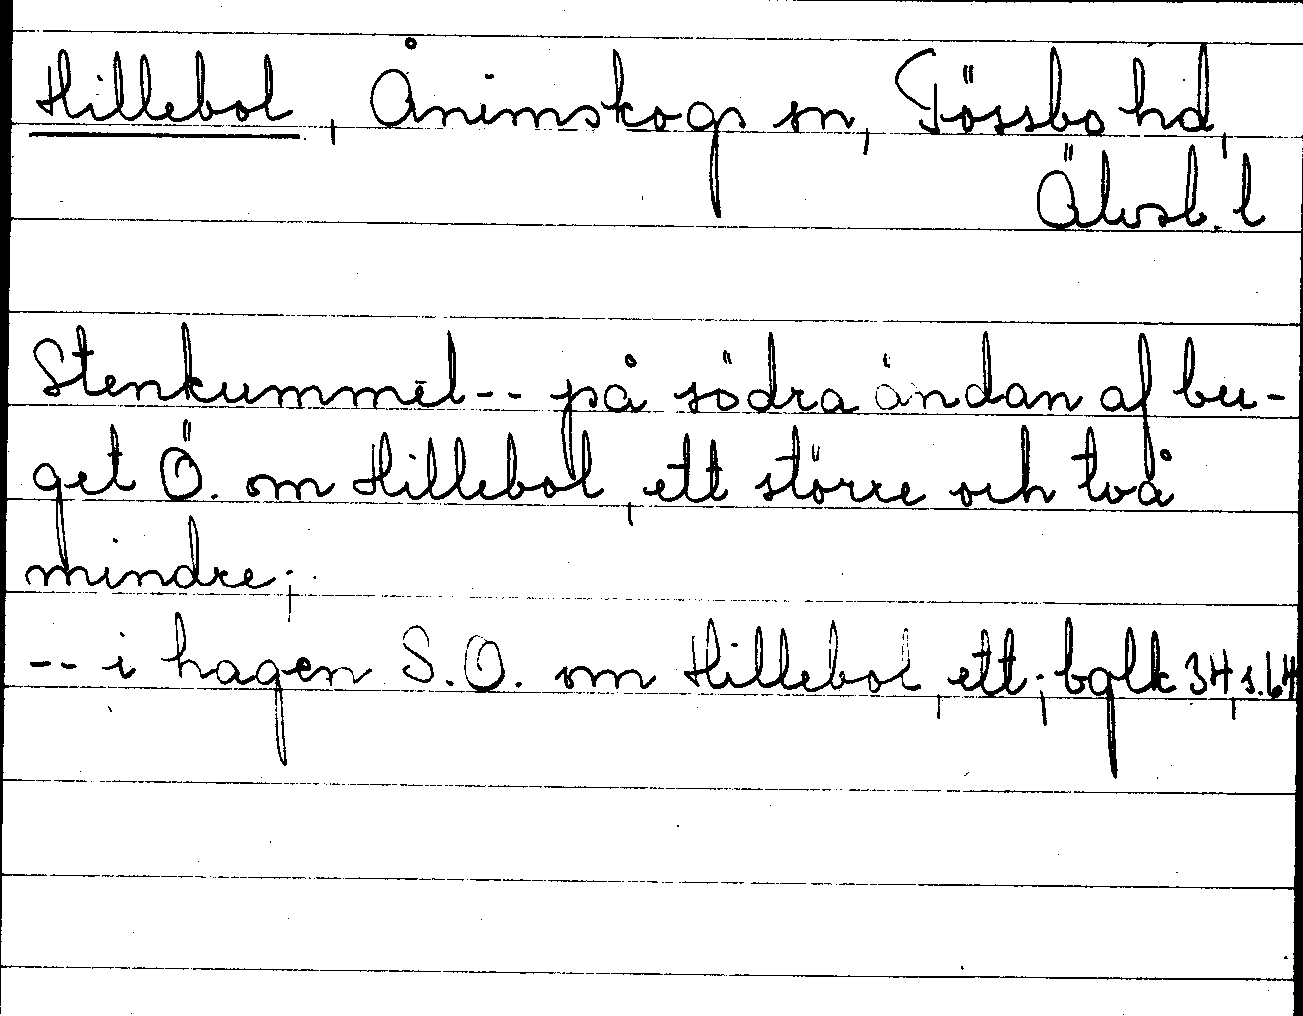 Hillebol, Ånimskogs sn, Tössbo hd,
Älvsb. l
Stenkummel -- på södra ändan af ber-
get Ö. om Hillebol, ett större och två
mindre;
-- i hagen S.O. om Hillebol, ett; bglk 34, s. 64